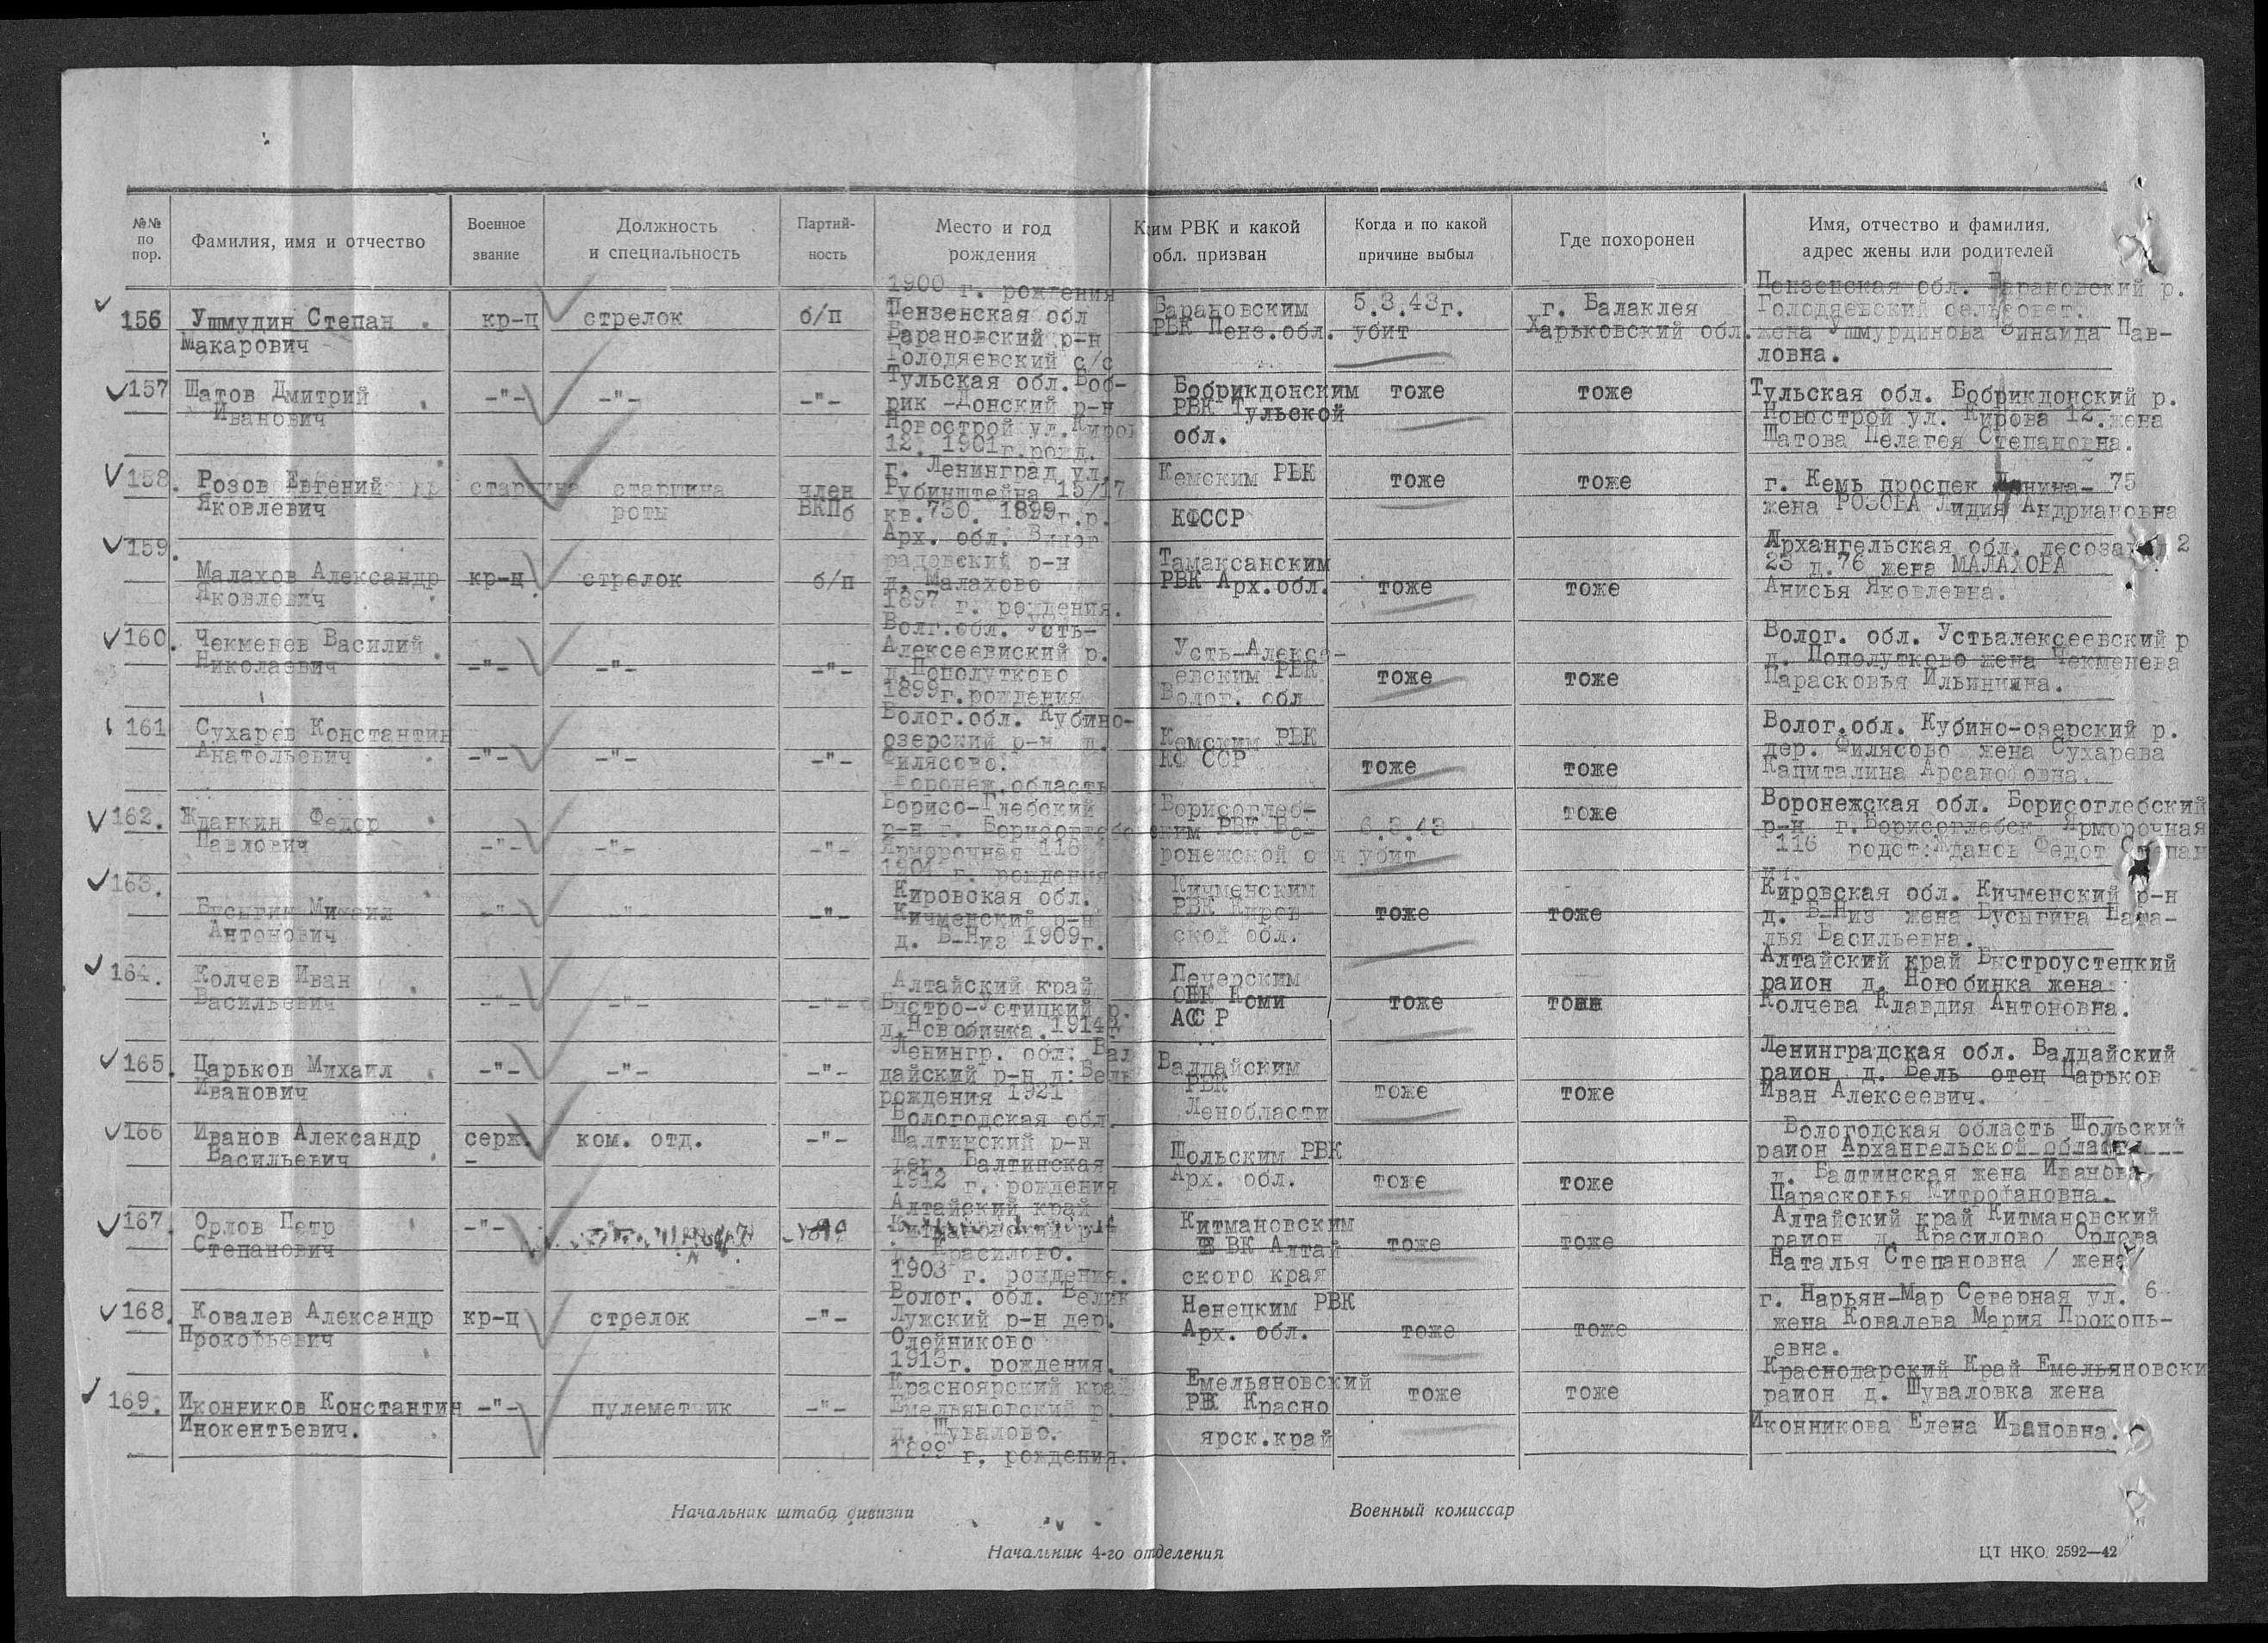 №№ по пор.
Фамилия, имя и отчество
Военное звание
Должность и специальность
Партий-ность
Место и год рождения
Ким РВК и какой обл. призван
Когда и по какой причине выбыл
Где похоронен
Имя, отчество и фамилия, адрес жены или родителей
156
Ушмудин Степан
Макарович
кр-ц
стрелок
б/п
1900 г. рождения
Пензенская обл
Барановский р-н
Голодяевский с/с
Барановским
РВК Пенз.обл.
5.3.43г.
убит
г. Балаклея
Харьковский обл.
Пензенская обл. Барановский р.
Голодяевский сельсовет.
жена Ушмурдинова Зинаида Пав-
ловна.
157
Шатов Дмитрий
Иванович
-"-
-"-
-"-
Тульская обл. Боб-
рик -Донский р-н
Новострой ул.Киров
12. 1901г.рожд.
Бобрикдонским
РВК Тульской
обл.
тоже
тоже
Тульская обл. Бобрикдонский р.
Новострой ул. Кирова 12.жена
Шатова Пелагея Степановна.
158.
Розов Евгений
Яковлевич
старшина
старшина
роты
член
ВКПб
г. Ленинград ул.
Рубинштейна 15/17
кв.730. 1899г.р.
Кемским РВК
КФССР
тоже
тоже
г. Кемь проспек Ленина- 75
жена РОЗОВА Лидия Андриановна
159.
Малахов Александр
Яковлевич
кр-ц
стрелок
б/п
Арх. обл. Виног
радовский р-н
д. Малахово
1897 г. рождения.
Тамаксанским
РВК Арх.обл.
тоже
тоже
Архангельская обл. лесозавод 2
23 д.76 жена МАЛАХОВА
Анисья Яковлевна.
160.
Чекменев Василий
Николаевич
-"-
-"-
-"-
Волг.обл. Усть-
Алексеевиский р.
д.Пополутково
1899г.рождения
Усть-Алексе-
евским РВК
Волог. обл
тоже
тоже
Волог. обл. Устьалексеевский р
д. Пополутково жена Чекменева
Парасковья Ильинишна.
161
Сухарев Константин
Анатольевич
-"-
-"-
-"-
Волог.обл. Кубино-
озерский р-н д.
Филясово.
Кемским РВК
КФ ССР
тоже
тоже
Волог.обл. Кубино-озерский р.
дер. Филясово жена Сухарева
Капиталина Арсановна.
162.
Жданкин Федор
Павлович
-"-
-"-
-"-
Воронеж.область
Борисо-Глебский
р-н г. Борисоглебс
Ярморочная 116
1901 г. рождения
Борисоглеб-
ским РВК Во-
ронежской обл
6.3.43
убит
тоже
Воронежская обл. Борисоглебский
р-н г.Борисоглебск Ярморочная
116 родст:Жданов Федот Степан
163.
Бусыгин Михаил
Антонович
-"-
-"-
-"-
Кировская обл.
Кичменский р-н
д. Б-Низ 1909г.
Кичменским
РВК Киров
ской обл.
тоже
тоже
Кировская обл. Кичменский р-н
д. Б-Низ жена Бусыгина Ната-
лья Васильевна.
164.
Колчев Иван
Васильевич
-"-
-"-
-"-
Алтайский край
Быстро-Устицкий р.
д.Новобинка.1914г
Печерским
РВК Коми
АССР
тоже
тоже
Алтайский край Быстроустецкий
район д. Новобинка жена
Колчева Клавдия Антоновна.
165.
Царьков Михаил
Иванович
-"-
-"-
-"-
Ленингр. обл. Вал
дайский р-н д:Вель
рождения 1921
Валдайским
РВК
Ленобласти
тоже
тоже
Ленинградская обл. Валдайский
район д. Вель отец Царьков
Иван Алексеевич.
166
Иванов Александр
Васильевич
серж.
ком. отд.
-"-
Вологодская обл.
Шалтинский р-н
дер. Балтинская
1912 г. рождения
Шольским РВК
Арх. обл.
тоже
тоже
Вологодская область Шольский
район Архангельской области
д. Балтинская жена Иванова
Парасковья Митрофановна.
167.
Орлов Петр
Степанович
-"-
Алтайский край
Китмановский р-н
д. Красилово.
1903 г. рождения.
Китмановским
РВК Алтай
ского края
тоже
тоже
Алтайский край Китмановский
район д. Красилово Орлова
Наталья Степановна / жена/
168.
Ковалев Александр
Прокофьевич
кр-ц
стрелок
-"-
Волог. обл. Велик
Лужский р-н дер.
Олейниково
1913г. рождения.
Ненецким РВК
Арх. обл.
тоже
тоже
г. Нарьян-Мар Северная ул. 6
жена Ковалева Мария Прокопь-
евна.
169.
Иконников Константин
Инокентьевич.
-"-
пулеметчик
-"-
Красноярский край
Емельяновский р.
д. Шувалово.
1899 г. рождения.
Емельяновский
РВК Красно
ярск.край
тоже
тоже
Краснодарский Край Емельяновски
район д. Шуваловка жена
Иконникова Елена Ивановна.
Начальник штаба дивизии
Военный комиссар
Начальник 4-го отделения
ЦТ НКО. 2592—42